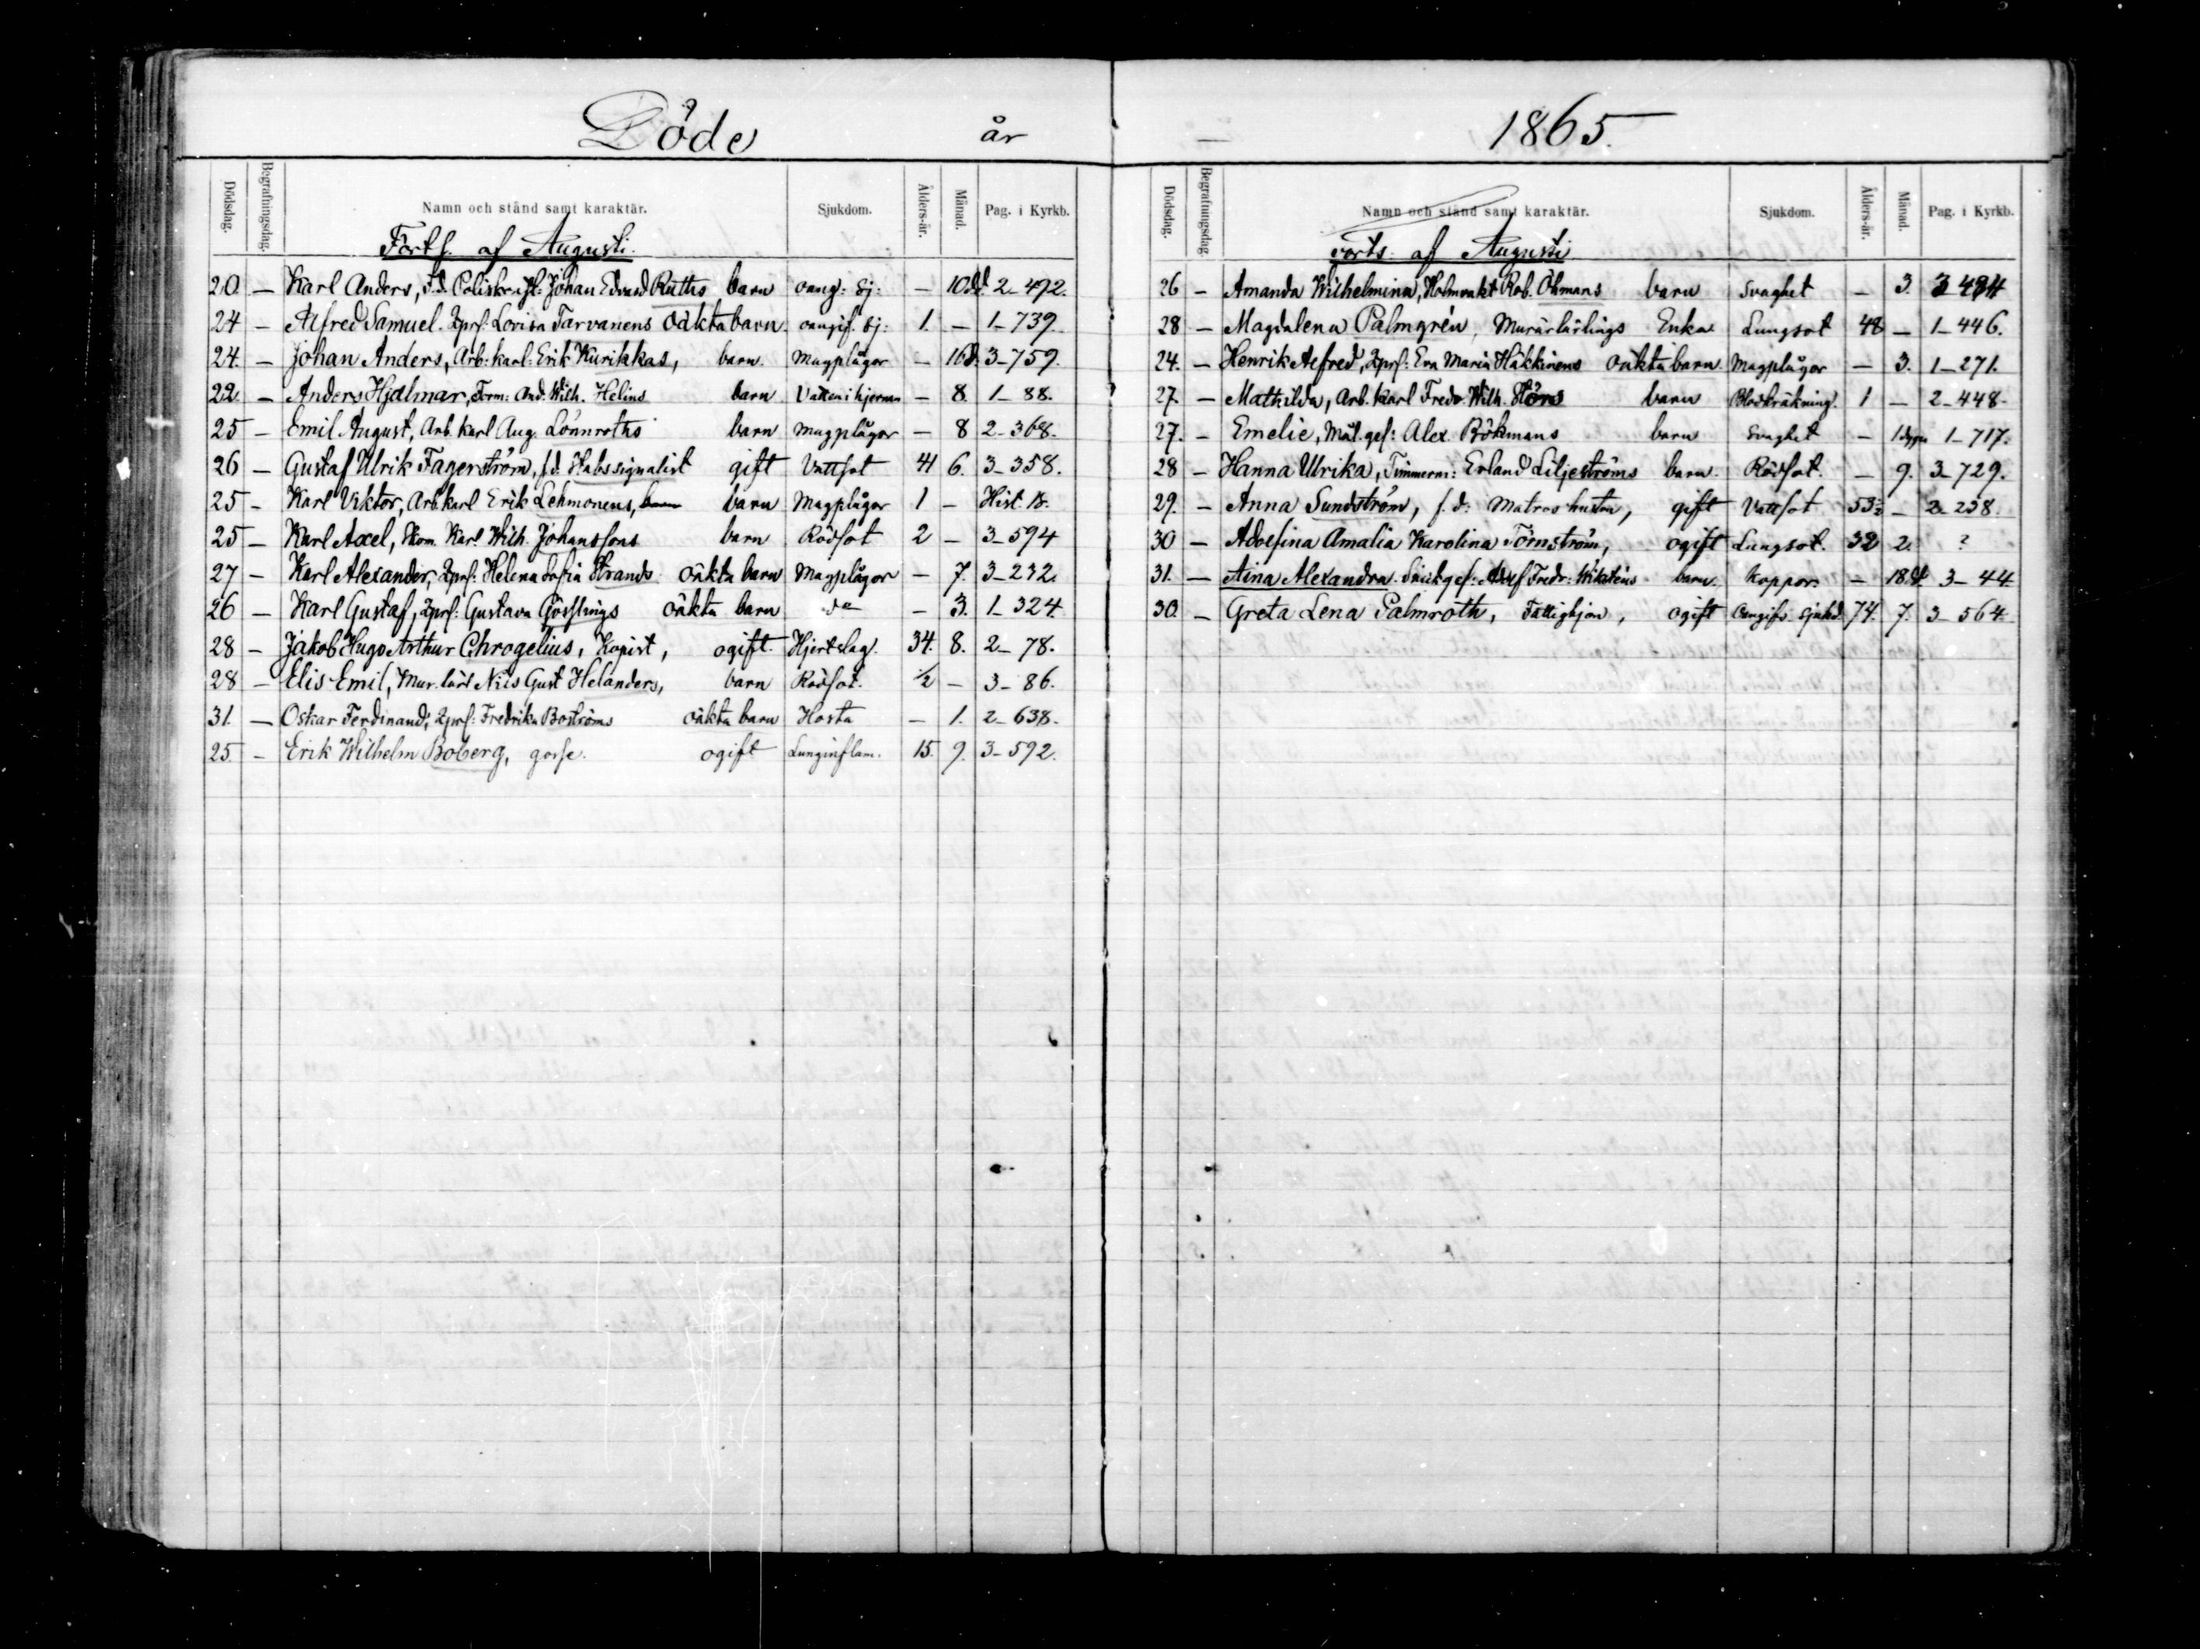 Döde år
Dödsdag. Begrafningsdag. Namn och stånd samt karaktär. Sjukdom. Ålders-år. Månad. Pag. i Kyrkb.
Forts. af Augusti.
20. — Karl Anders, f.d. Poliskonst: Johan Edvard Ruths barn oang: Sj: — 10 d. 2-492.
24 — Alfred Samuel. Qprs: Lovisa Tarvanens oäkta barn. oangif. Sj: 1. — 1-739.
24. — Johan Anders, Arb: karl: Erik Kurikkas, barn. Magplågor — 16 d. 3-759.
22 — Anders Hjalmar, Form: And. Wilh. Helins barn Vatten i hjernan — 8. 1-88.
25 — Emil August, Arb. karl Aug. Lönnroths barn Magplågor — 8 2-368.
26 — Gustaf Ulrik Fagerström, f.d. Habssignalist gift Vattsot 41 6. 3-358.
25 — Karl Viktor, Arb. karl Erik Lehmonens, barn Magplågor 1 — Hist. 18.
25 — Karl Axel, Skom. Karl Wilh. Johanssons barn Rödsot 2 — 3-594
27 — Karl Alexander, Qprs: Helena Sofia Strands oäkta barn Magplågor — 7. 3-232.
26 — Karl Gustaf, Qprs: Gustava Gösslings oäkta barn do — 3. 1-324.
28 — Jakob Hugo Arthur Chrogelius, Kopist, ogift. Hjertslag. 34. 8. 2-78.
28 — Elis Emil, Mur. lärl Nils Gust Helanders, barn Rödsot. ½ — 3-86.
31. — Oskar Ferdinand, Qprs: Fredrika Boströms oäkta barn Hosta — 1. 2-638.
25. — Erik Wilhelm Boberg, gosse. ogift Lunginflam. 15. 9. 3-592.
1865.
Dödsdag. Begrafningsdag Namn och stånd samt karaktär. Sjukdom. Ålders-år. Månad. Pag. i Kyrkb.
Forts. af Augusti
26 — Amanda Wilhelmina, Holmvakt Rob. Öhmans barn Svaghet — 3. 3 484
28 — Magdalena Palmgrén, Murärlärlings Enka Lungsot 48 — 1-446.
24. — Henrik Alfred, Qprs: Eva Maria Häkkinens oäkta barn. Magplågor — 3. 1-271.
27. — Mathilda, Arb. karl Fredr. Wilh. Hörs barn Blodkräkning. 1 — 2-448.
27. — Emelie, Mål. ges: Alex. Bökmans barn Svaghet — 1 dygn 1-717.
28 — Hanna Ulrika, Timmerm: Erland Liljeströms barn Rödsot. — 9. 3-729.
29. — Anna Sundström, f.d: Matros hustru, gift Vattsot 53½ — 2-238.
30 — Adolfina Amalia Karolina Törnström, ogift Lungsot. 32 2. ?
31. — Aina Alexandra. Snickges: Adolf Fredr: Wikstens barn. Koppor. — 18 d. 3-44
30. — Greta Lena Palmroth, Fattighjon, ogift Oangifv. Sjukd 74. 7. 3-564